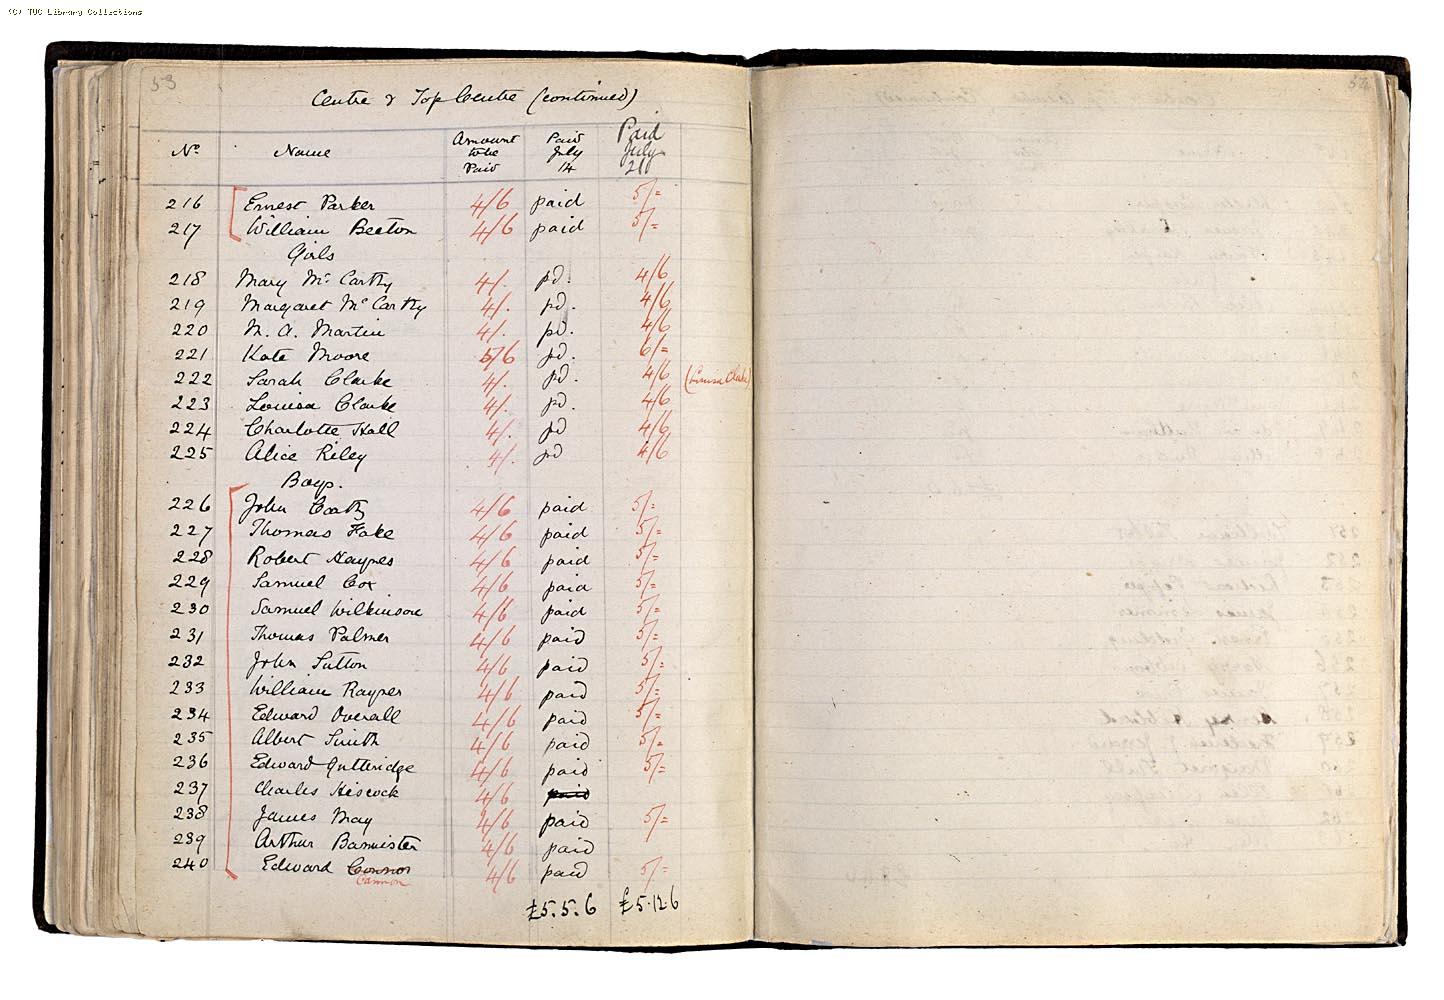 (C) TUC Library Collections
53
Centre & Top Centre (continued)
No Name Amount to be Paid Paid July 14 Paid July 21
216 Ernest Parker 4/6 paid 5/=
217 William Beeton 4/6 paid 5/=
Girls
218 Mary McCarthy 4/. pd. 4/6
219 Margaret McCarthy 4/. pd. 4/6
220 M. A. Martin 4/. pd. 4/6
221 Kate Moore 5/6 pd. 6/=
222 Sarah Clarke 4/. pd. 4/6 (Louisa Clarke)
223 Louisa Clarke 4/. pd. 4/6
224 Charlotte Hall 4/. pd 4/6
225 Alice Riley 4/. pd 4/6
Boys.
226 John 4/6 paid 5/=
227 Thomas Fake 4/6 paid 5/=
228 Robert Haynes 4/6 paid 5/=
229 Samuel Cox 4/6 paid 5/=
230 Samuel Wilkinson 4/6 paid 5/=
231 Thomas Palmer 4/6 paid 5/=
232 John Sutton 4/6 paid 5/=
233 William Rayner 4/6 paid 5/=
234 Edward Overall 4/6 paid 5/=
235 Albert Smith 4/6 paid 5/=
236 Edward Gutteridge 4/6 paid 5/=
237 Charles Hiscock 4/6 paid
238 James May 4/6 paid 5/=
239 Arthur Bannister 4/6 paid
240 Edward Connor 4/6 paid 5/=
Cannon
£5.5.6 £5.12.6
54